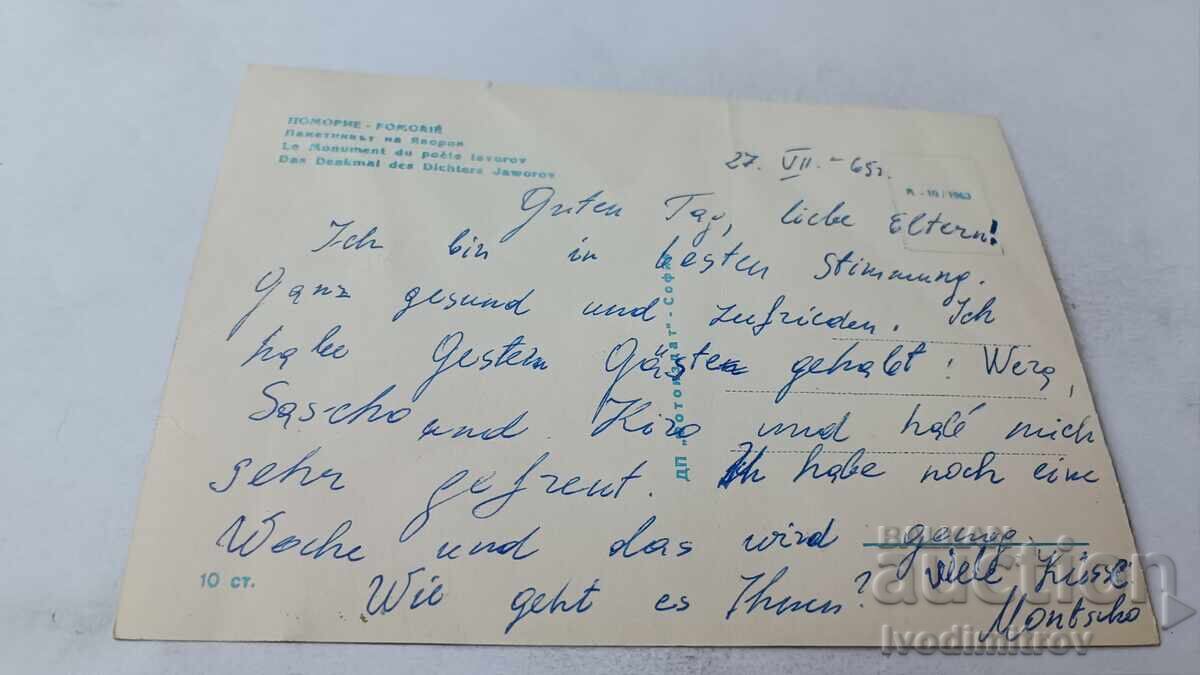 ПОМОРИЕ - POMORIE
Паметникът на Яворов
Le Monument du poète Iavorov
Das Denkmal des Dichters Jaworov
27. VII. - 65г.
А - 10 / 1963
Guten Tag, liebe Eltern!
Ich bin in besten Stimmung.
Ganz gesund und zufrieden. Ich
habe Gestern Gäste gehabt: Wera,
Sascho und Kiro und habe mich
sehr gefreut. Ich habe noch eine
Woche und das wird genug.
Wie geht es Ihnen? Viele Küsse
Montscho
ДП „Фотоиздат" - София
10 ст.
BALKAN
auction
Ivodimitrov